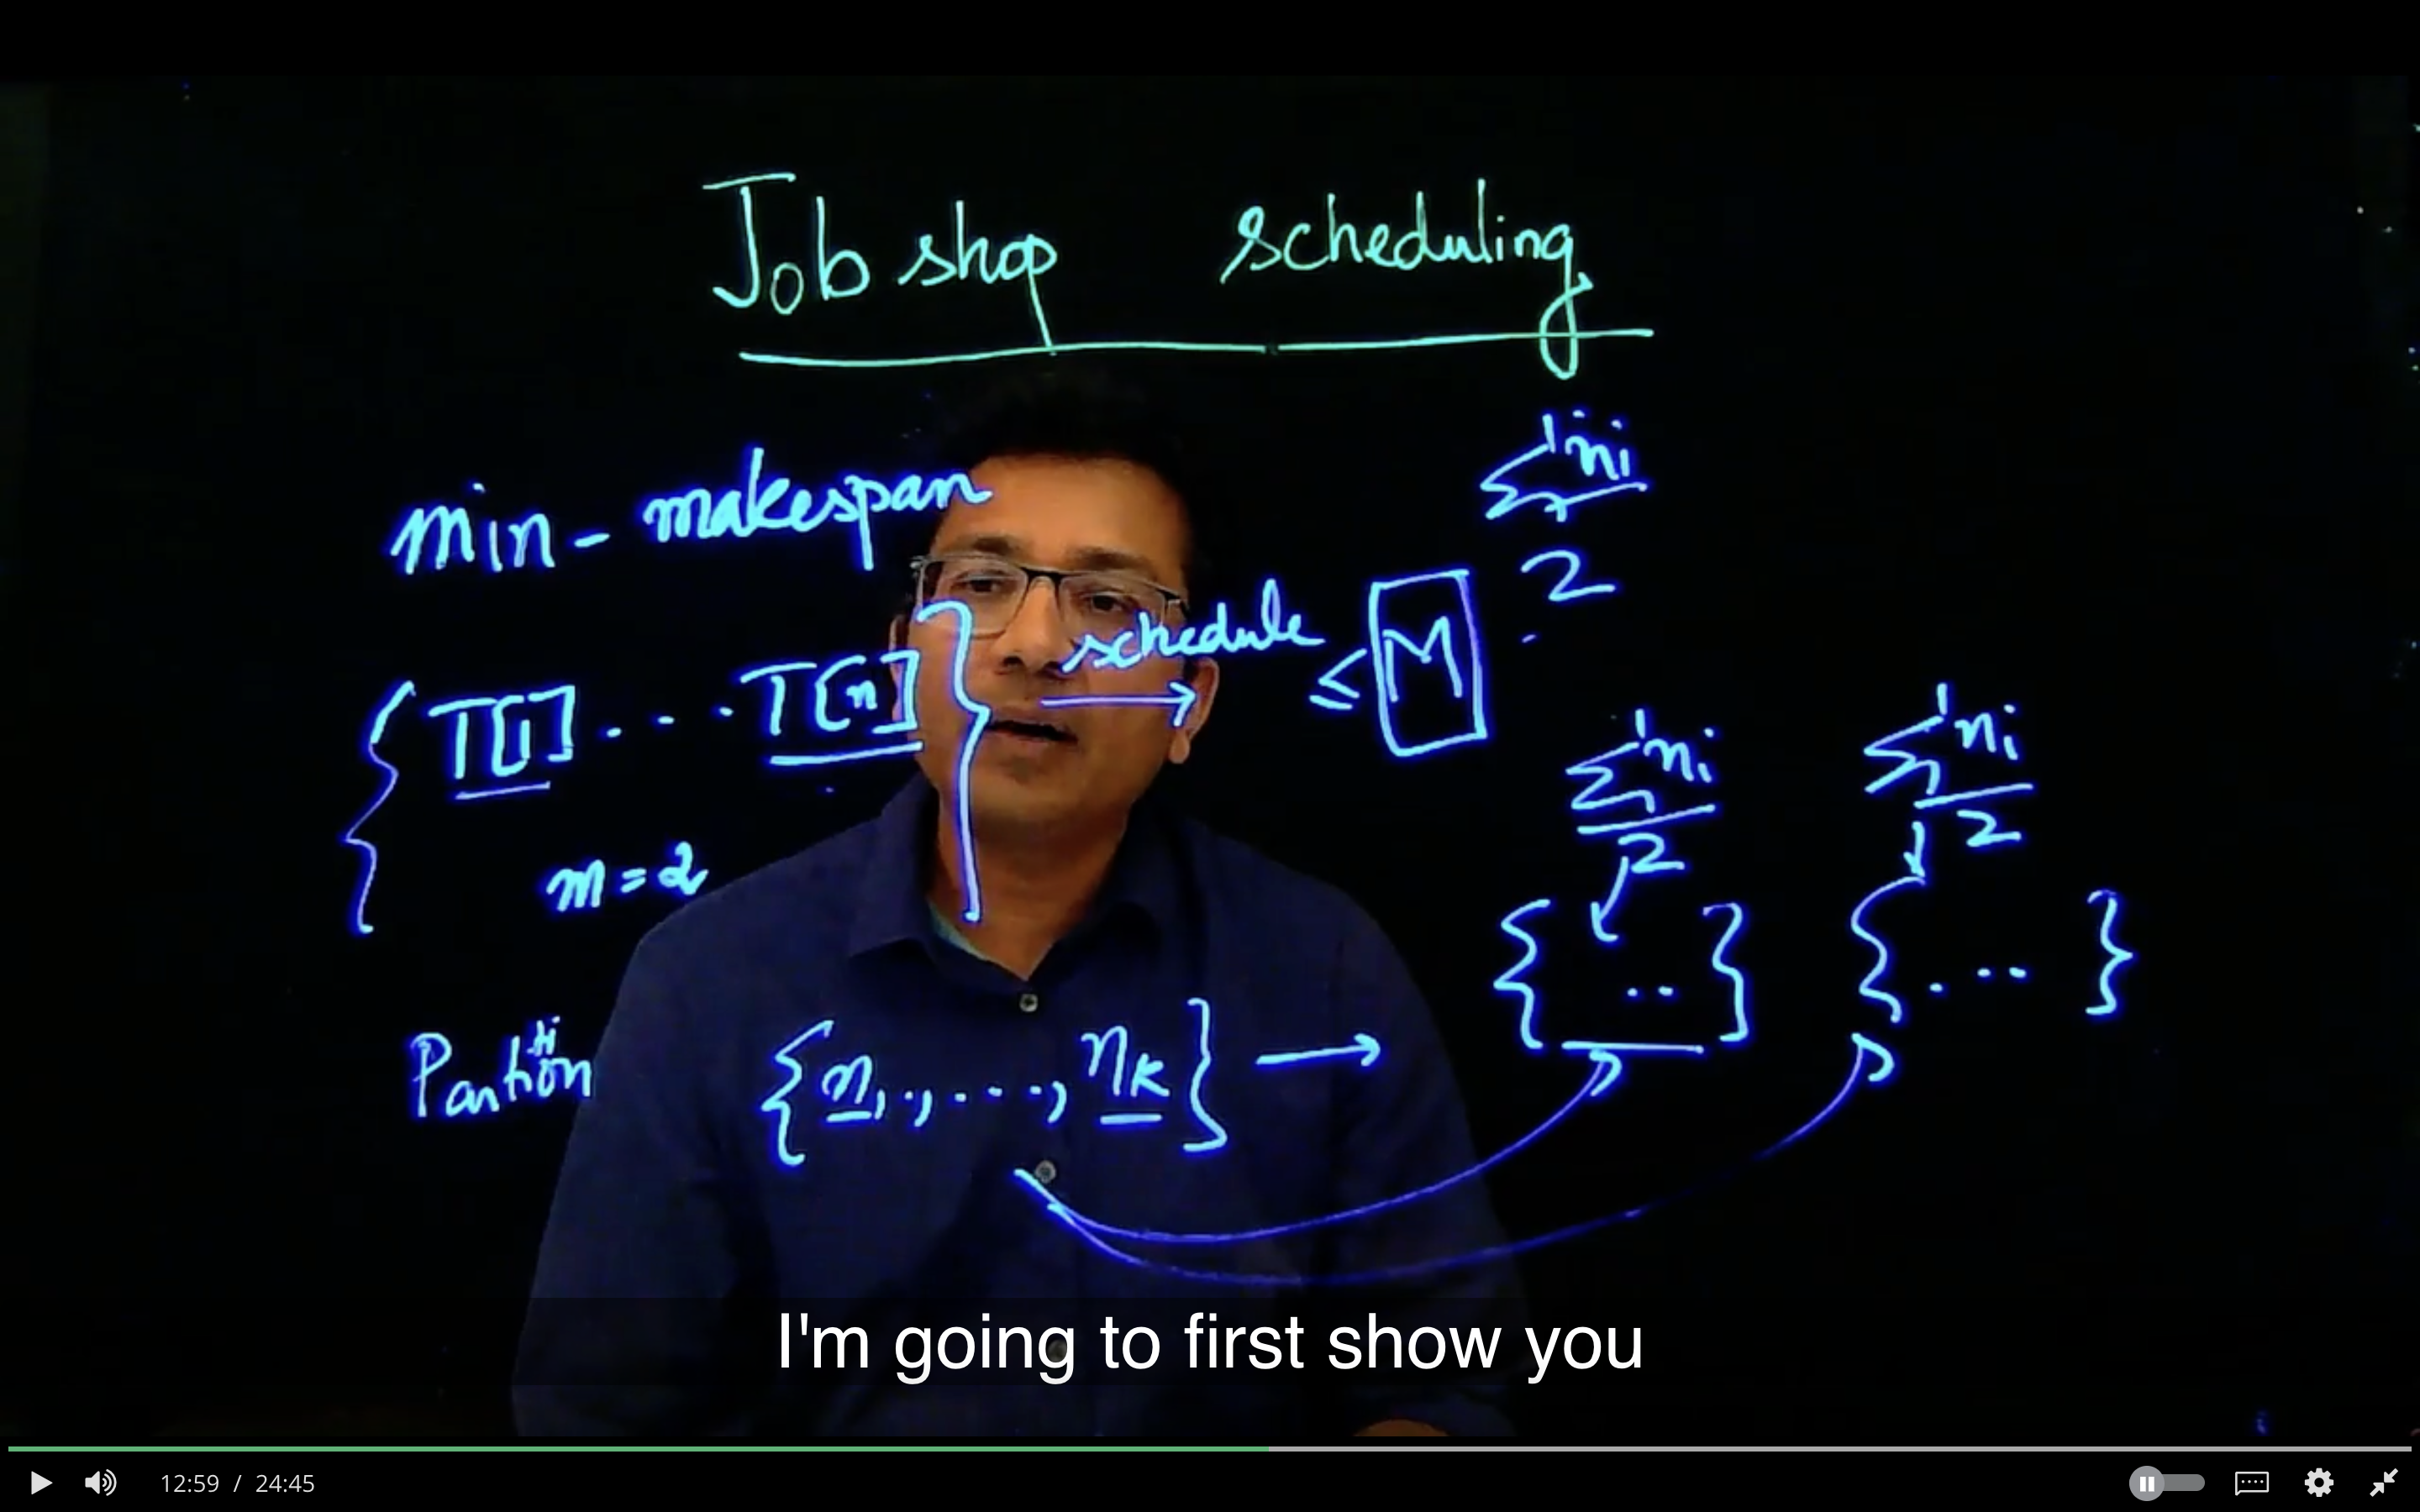 Job shop scheduling
min - makespan
∑ni
2
{ T[1] ... T[n] } schedule → ≤ M
m = 2
∑ni
2
∑ni
2
{ .. } { ... }
Partition
ti
{ n1, ., ..., nk } →
I'm going to first show you
12:59 / 24:45